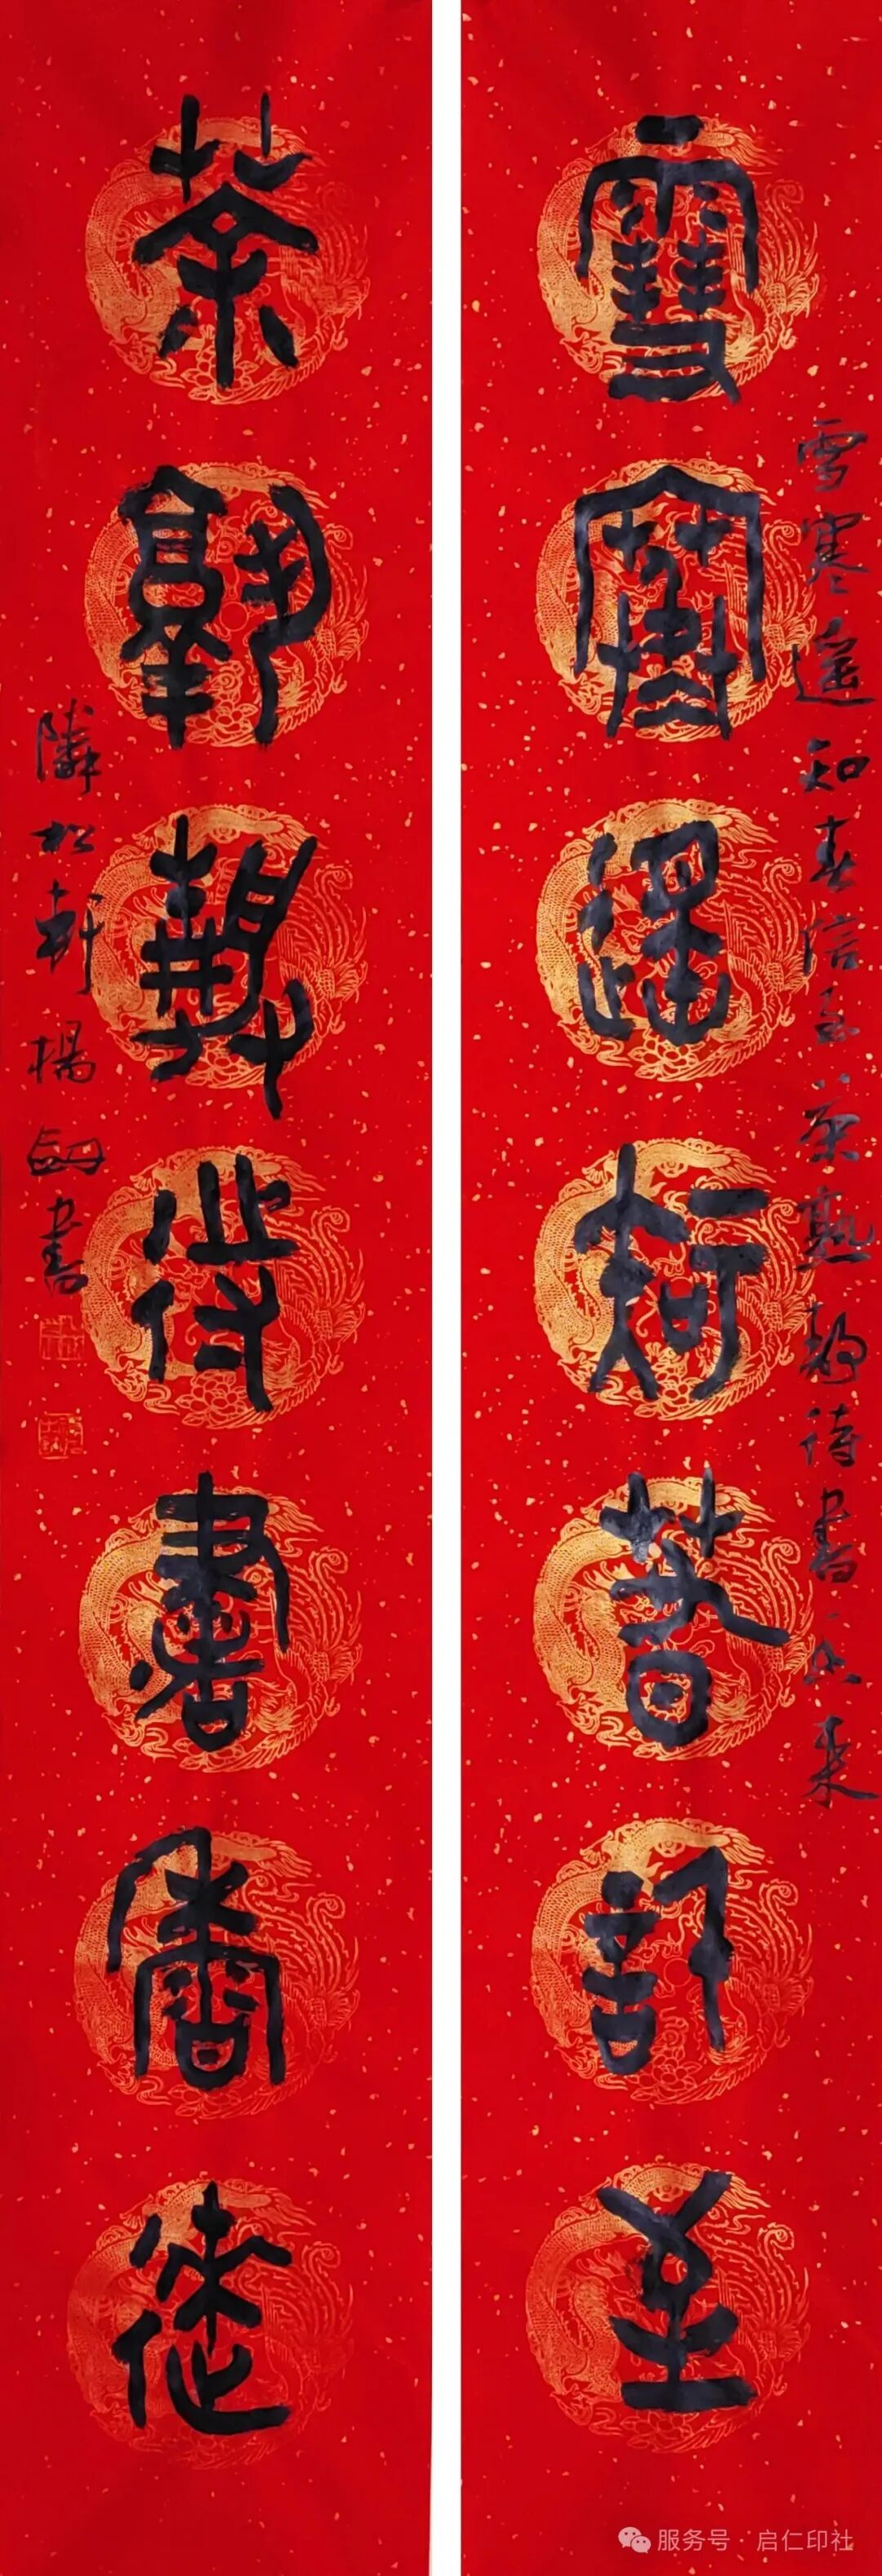 雪寒遥知春信至
雪寒遥知春信至茶熟静待书香来
茶熟静待書香來
隣松軒楊劍書
服务号·启仁印社